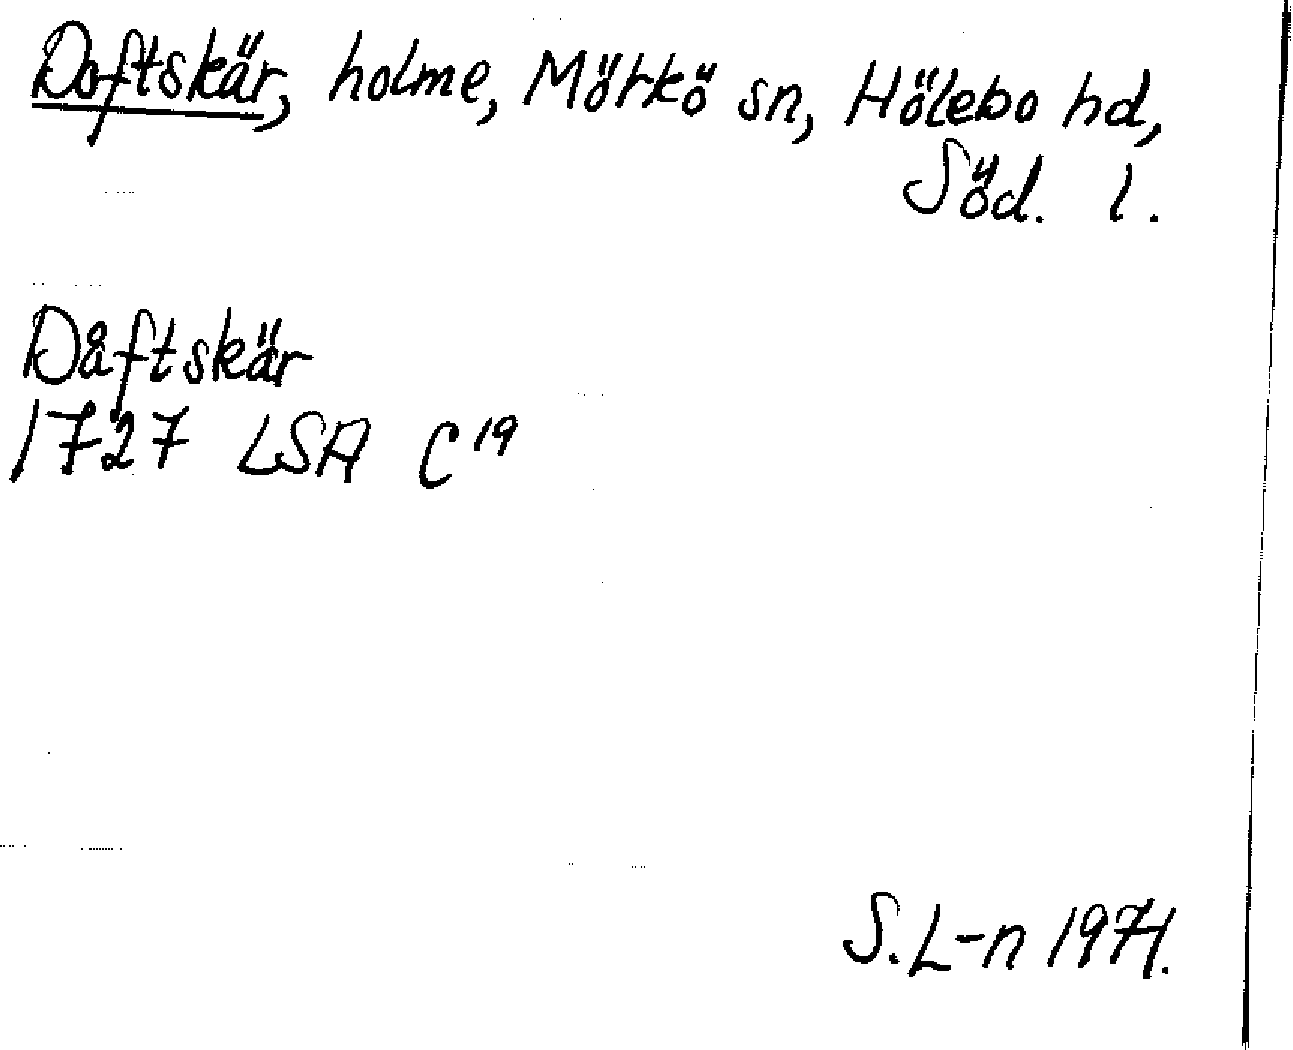 Doftskär, holme, Mörkö sn, Hölebo hd,
Söd. l.
Dåftskär
1727 LSA C¹⁹
S.L-n 1971.